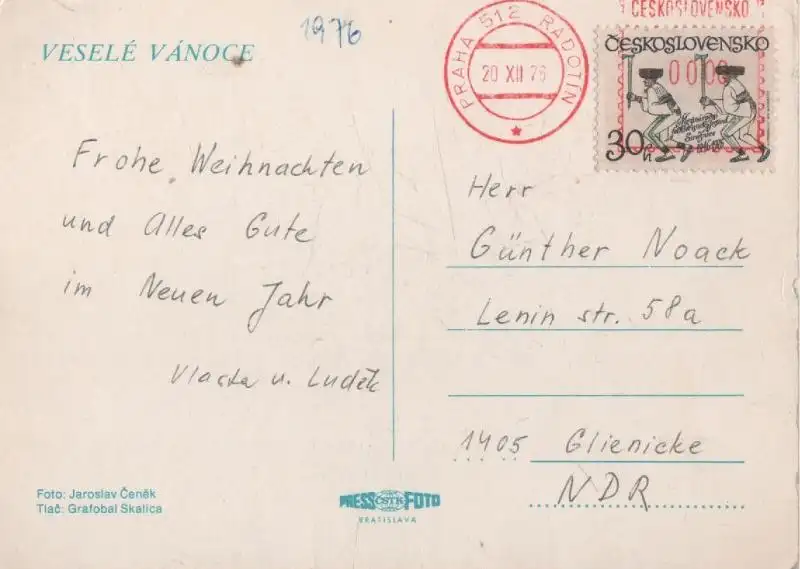 VESELÉ VÁNOCE
1976
Frohe Weihnachten
und Alles Gute
im Neuen Jahr
Vlasta u. Luděk
Foto: Jaroslav Čeněk
Tlač: Grafobal Skalica
PRESS ČSTK FOTO
BRATISLAVA
PRAHA 512 RADOTÍN
20 XII 76
ČESKOSLOVENSKO
ČESKOSLOVENSKO
0000
30h
Herr
Günther Noack
Lenin str. 58a
1405 Glienicke
NDR